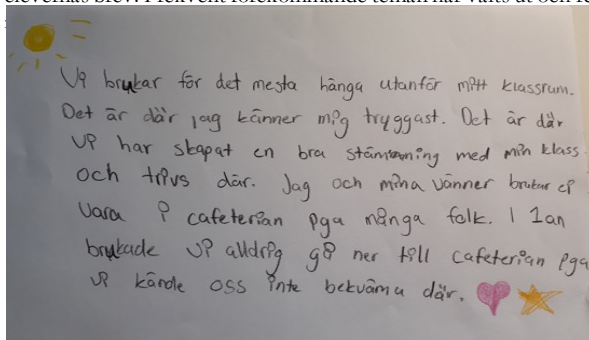 Vi brukar för det mesta hänga utanför mitt klassrum.
Det är där jag känner mig tryggast. Det är där
vi har skapat en bra stämning med min klass
och trivs där. Jag och mina vänner brukar ej
vara i cafeterian pga många folk. I 1an
brukade vi alldrig gå ner till cafeterian pga
vi kände oss inte bekväma där.